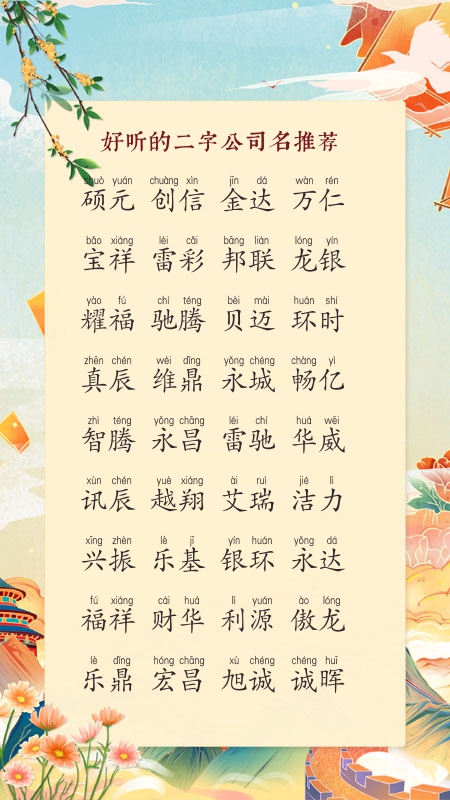 好听的二字公司名推荐
shuò yuán chuàng xìn jīn dá wàn rén
硕元 创信 金达 万仁
bǎo xiáng léi cǎi bāng lián lóng yín
宝祥 雷彩 邦联 龙银
yào fú chí téng bèi mài huán shí
耀福 驰腾 贝迈 环时
zhēn chén wéi dǐng yǒng chéng chàng yì
真辰 维鼎 永城 畅亿
zhì téng yǒng chāng léi chí huá wēi
智腾 永昌 雷驰 华威
xùn chén yuè xiáng ài ruì jié lì
讯辰 越翔 艾瑞 洁力
xīng zhèn lè jī yín huán yǒng dá
兴振 乐基 银环 永达
fú xiáng cái huá lì yuán ào lóng
福祥 财华 利源 傲龙
lè dǐng hóng chāng xù chéng chéng huī
乐鼎 宏昌 旭诚 诚晖